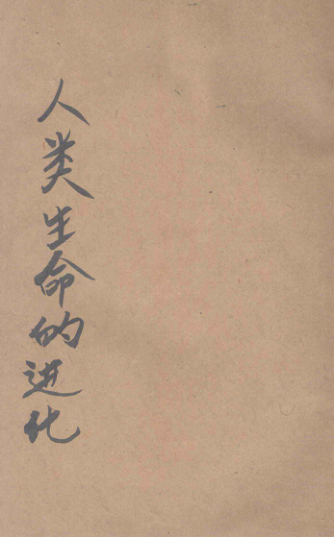 人类生命的进化